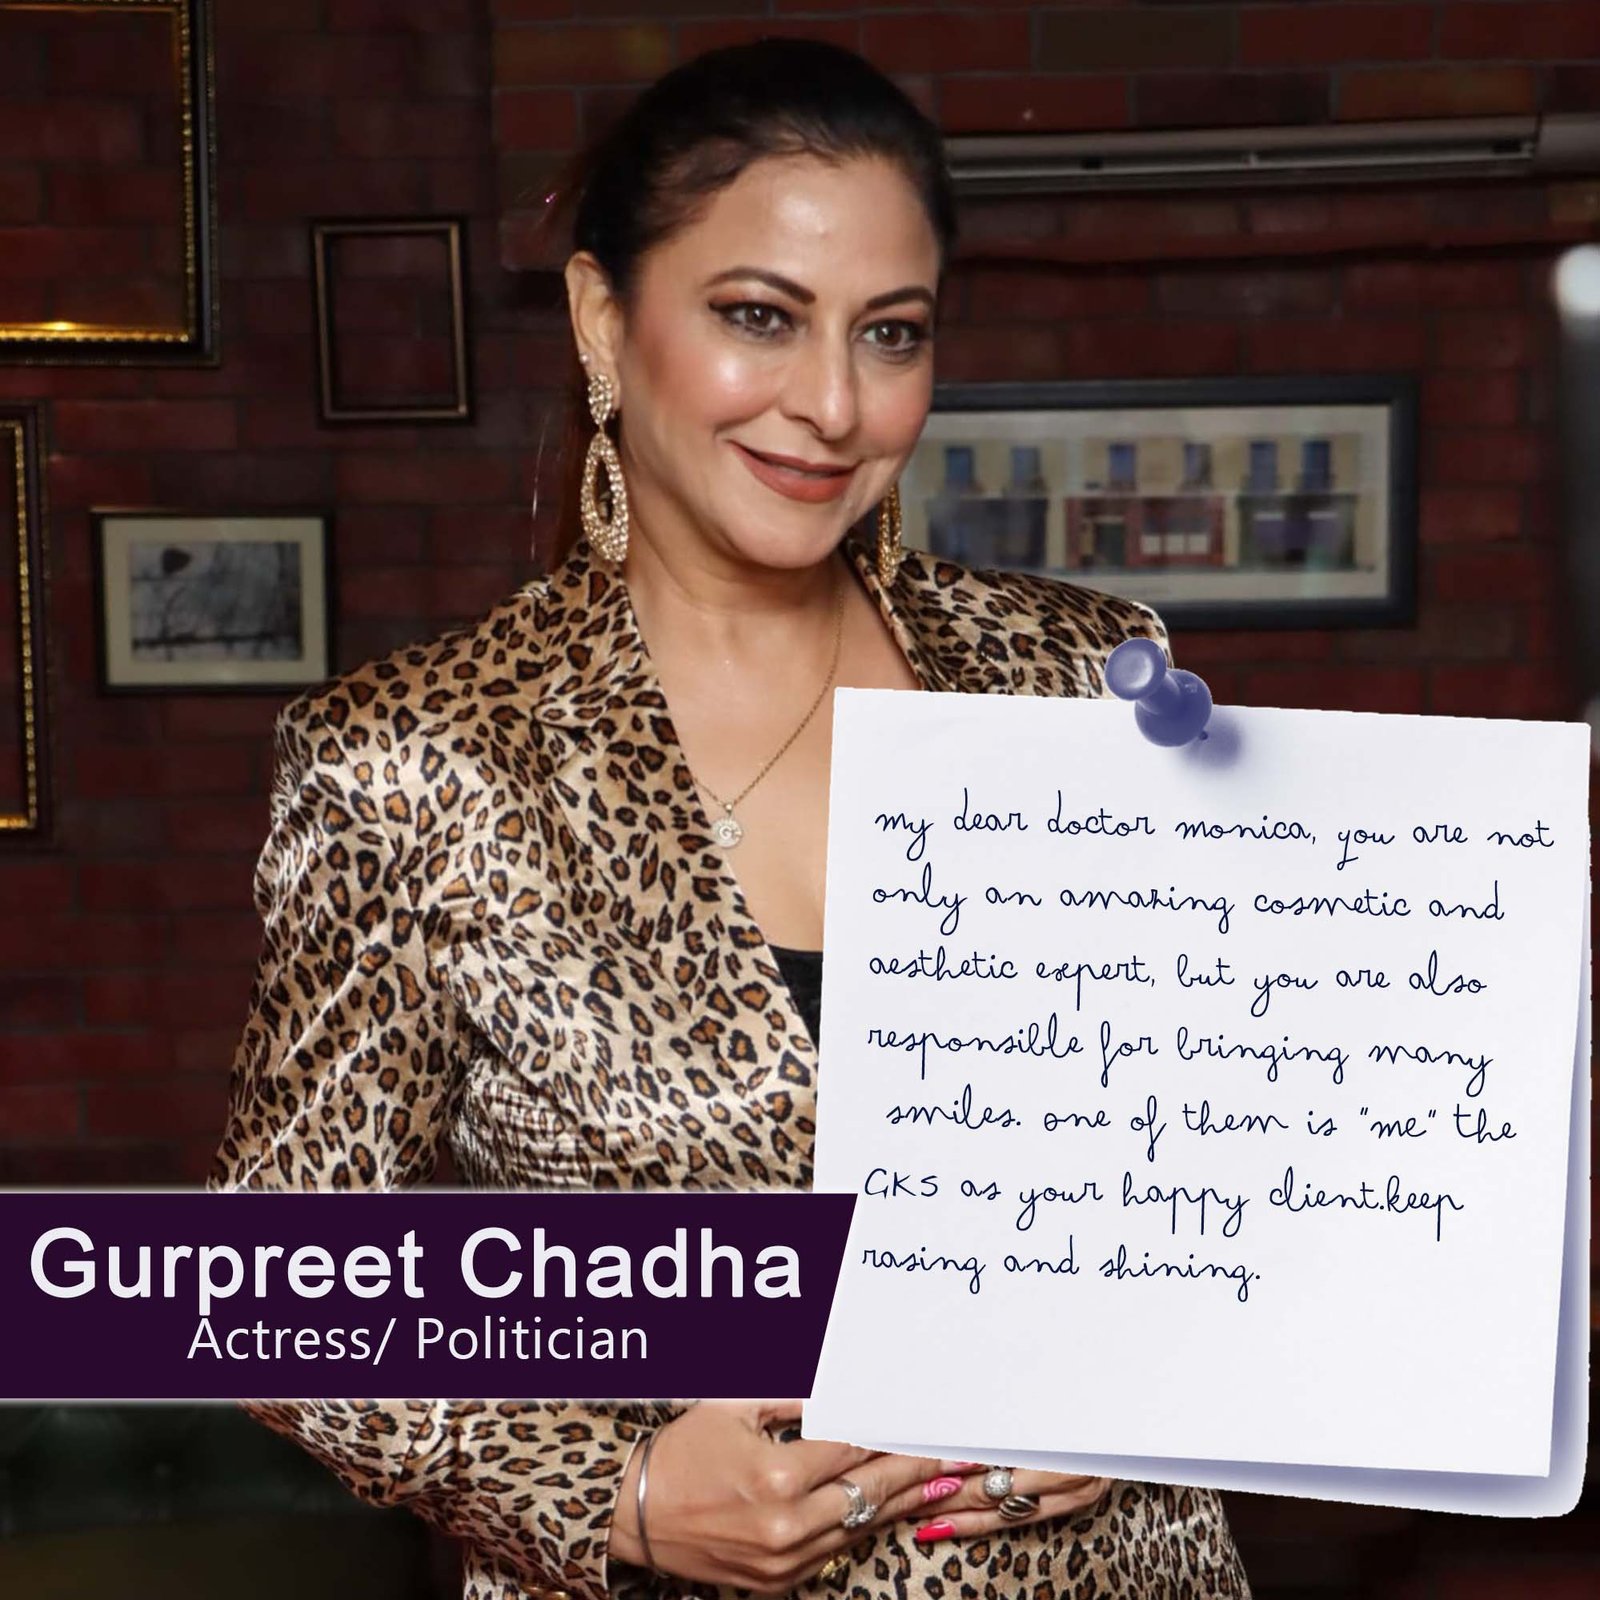 my dear doctor monica, you are not
only an amazing cosmetic and
aesthetic expert, but you are also
responsible for bringing many
smiles. one of them is "me" the
GKS as your happy client.keep
rasing and shining.
Gurpreet Chadha
Actress/ Politician
G